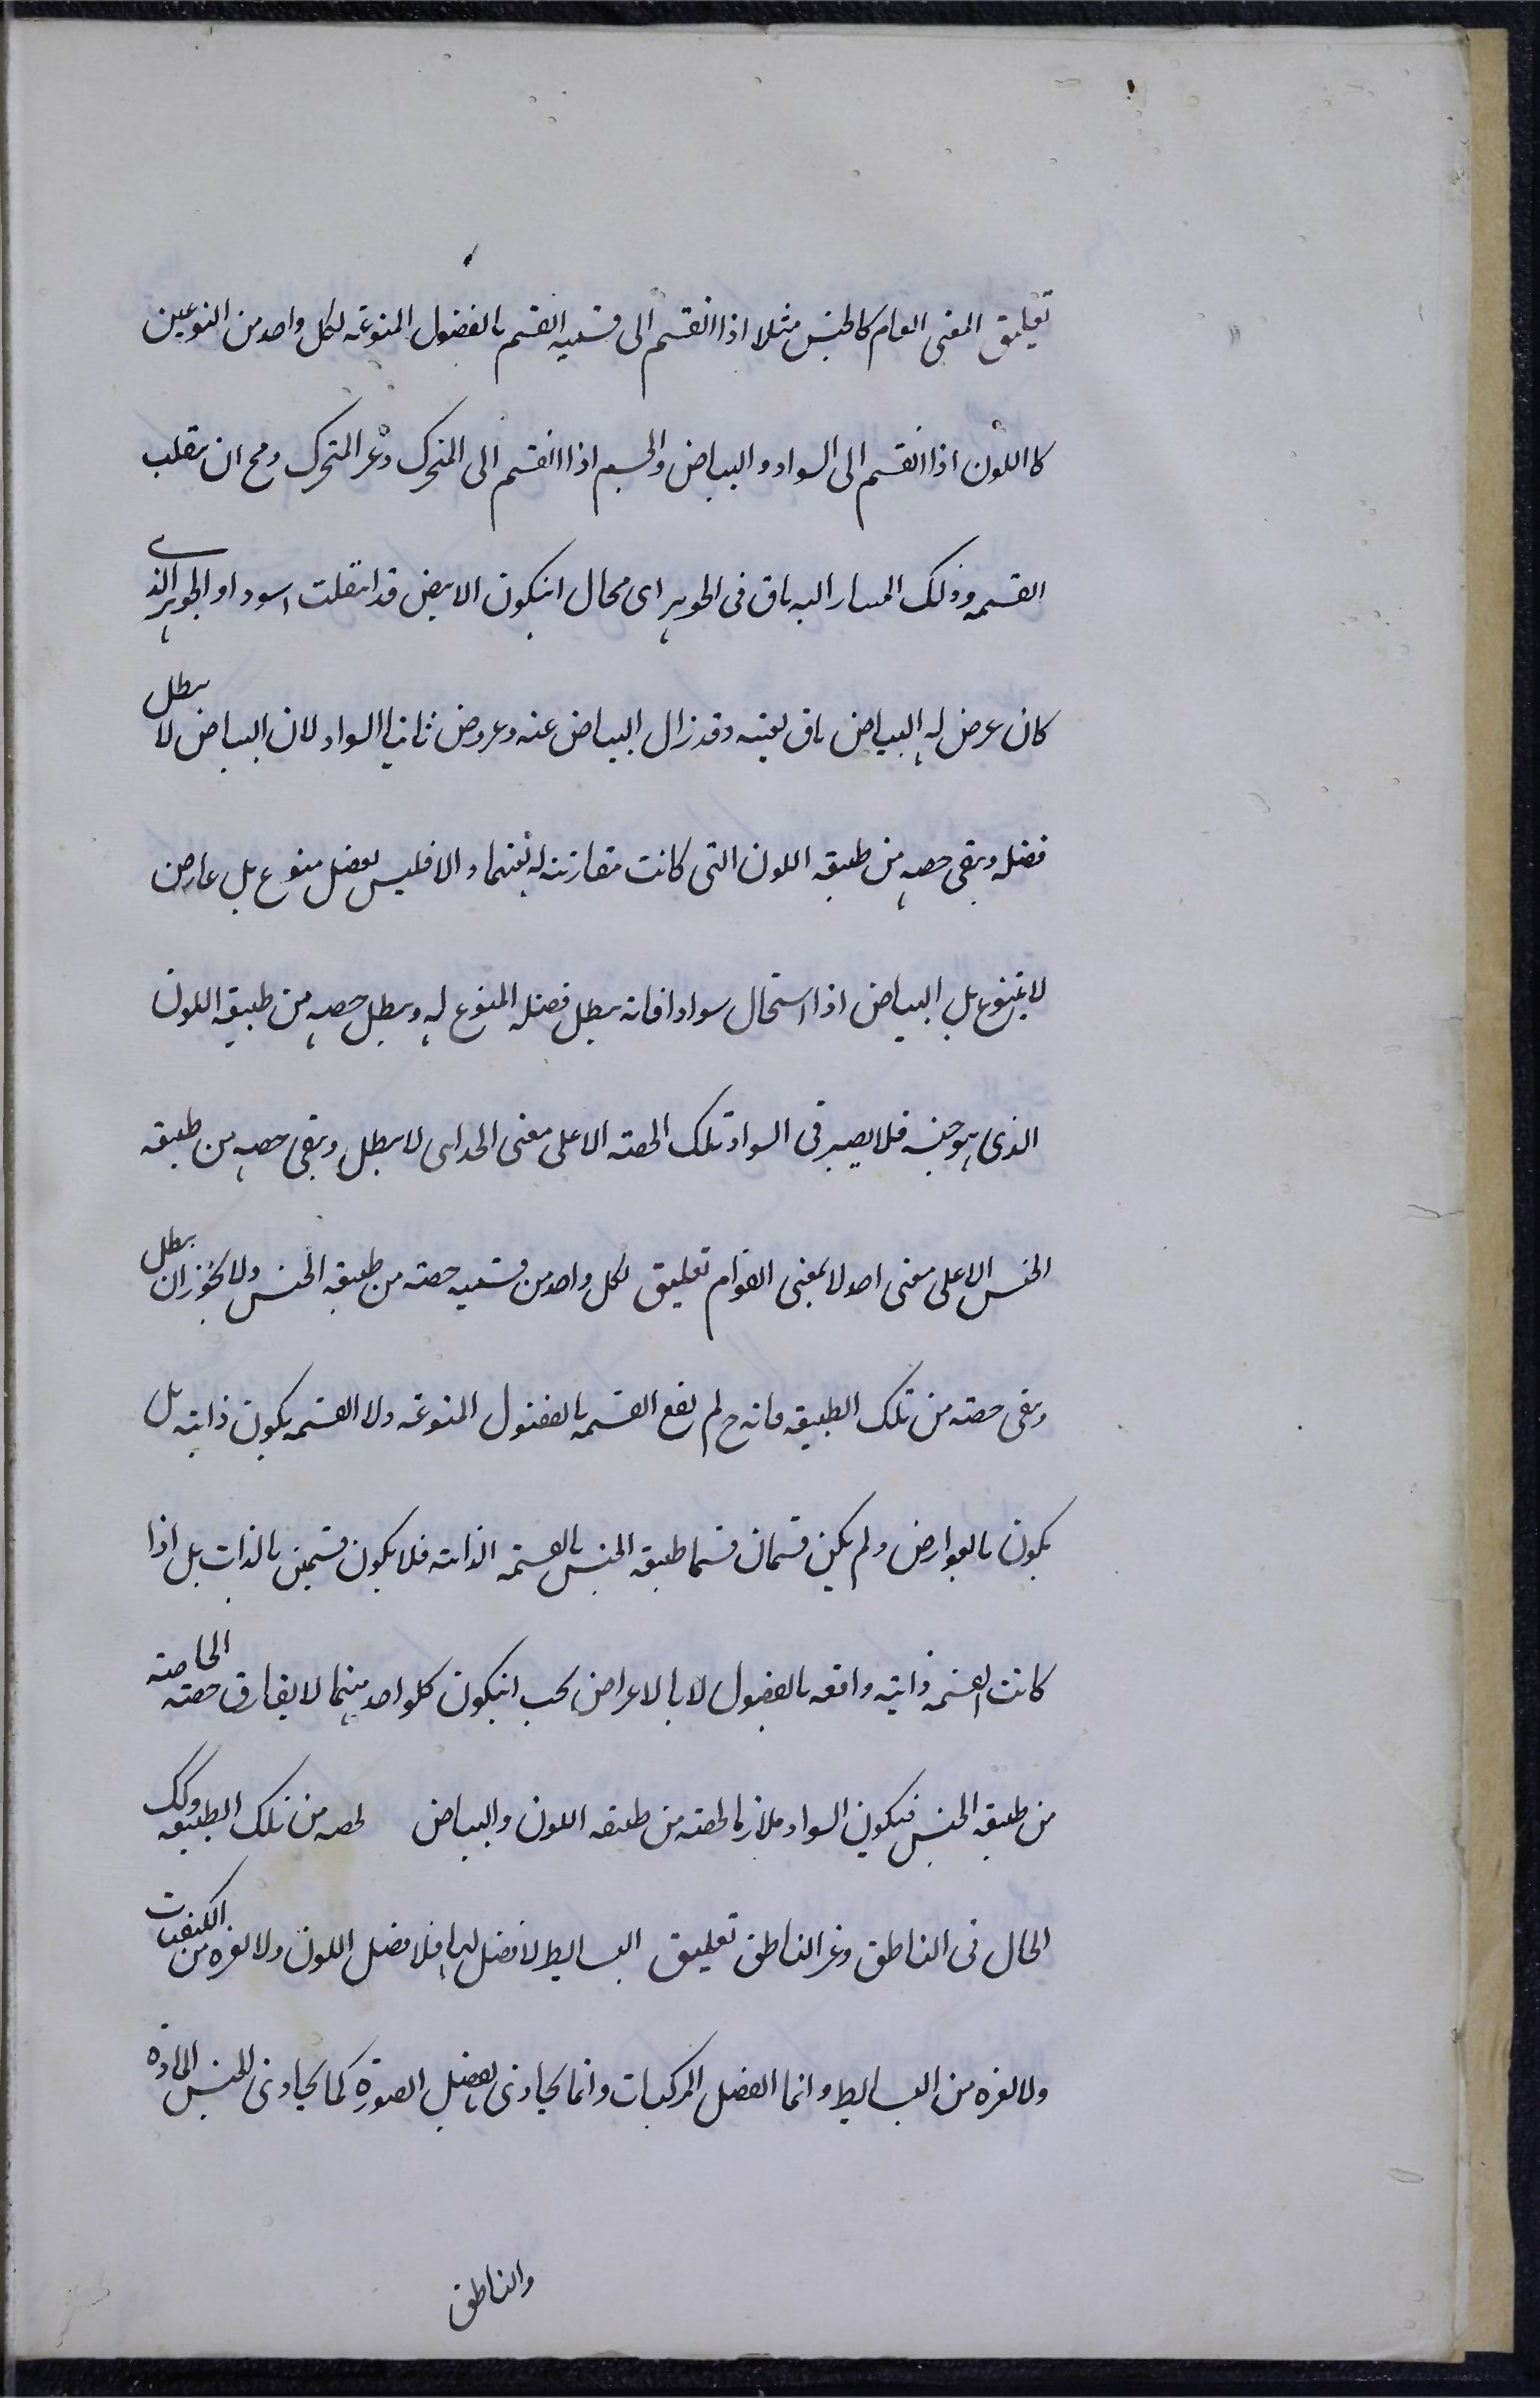 تعليق المعنى العام كالجنس مثلا اذا انقسم الى قسميه القسم بالفصول المنوعه لكل واحد من النوعين
كاللون اذا انقسم الى السواد و البياض والجسم اذا انقسم الى المتحرك وغير المتحرك ومح ان ينقلب
القسمه وذلك المشار اليه باق فى الجوهر اى محال انيكون الابيض قد انتقلت اسود او الجوهر الذى
كان عرض له البياض باق بعينه وقد زال البياض عنه وعروض ثانيا السواد لان البياض لا يبطل
فصله ويبقى حصه من طبيعه اللون التى كانت مقارنته له بعينها والا فليس بفصل منوع بل عارض
لا بمنوع بل البياض اذا استحال سوادا فانه يبطل فصله المنوع له ويبطل حصه من طبيعه اللون
الذى هو جنسه فلا يصير فى السواد تلك الحصه الا على معنى الحد اى لا يبطل ويبقى حصه من طبيعه
الجنس الا على معنى احد لا بمعنى القوام تعليق لكل واحد من قسميه حصته من طبيعه الجنس ولا يجوز ان يبطل
ويبقى حصته من تلك الطبيعه فانه ح لم يقع القسمه بالفصول المنوعه ولا القسمه يكون ذاتيه بل
يكون بالعوارض ولم يكن قسمان قسما طبيعه الجنس بالقسمه الذاتيه فلا يكون قسمين بالذات بل اذا
كانت القسمه ذاتيه واقعه بالفصول لا بالاعراض يجب انيكون كلواحد منهما لا يفارق حصته الخاصه
من طبيعه الجنس فيكون السواد ملازما لحصه من طبيعه اللون والبياض لحصه من تلك الطبيعه وكك
الحال فى الناطق وغير الناطق تعليق البسايط لا فصل لها فلا فصل اللون ولا لغيره من الكيفيات
ولا لغيره من البسايط و انما الفصل المركبات و انما يحاذى بفصل الصورة كما يحاذى للجنس المادة
والناطق